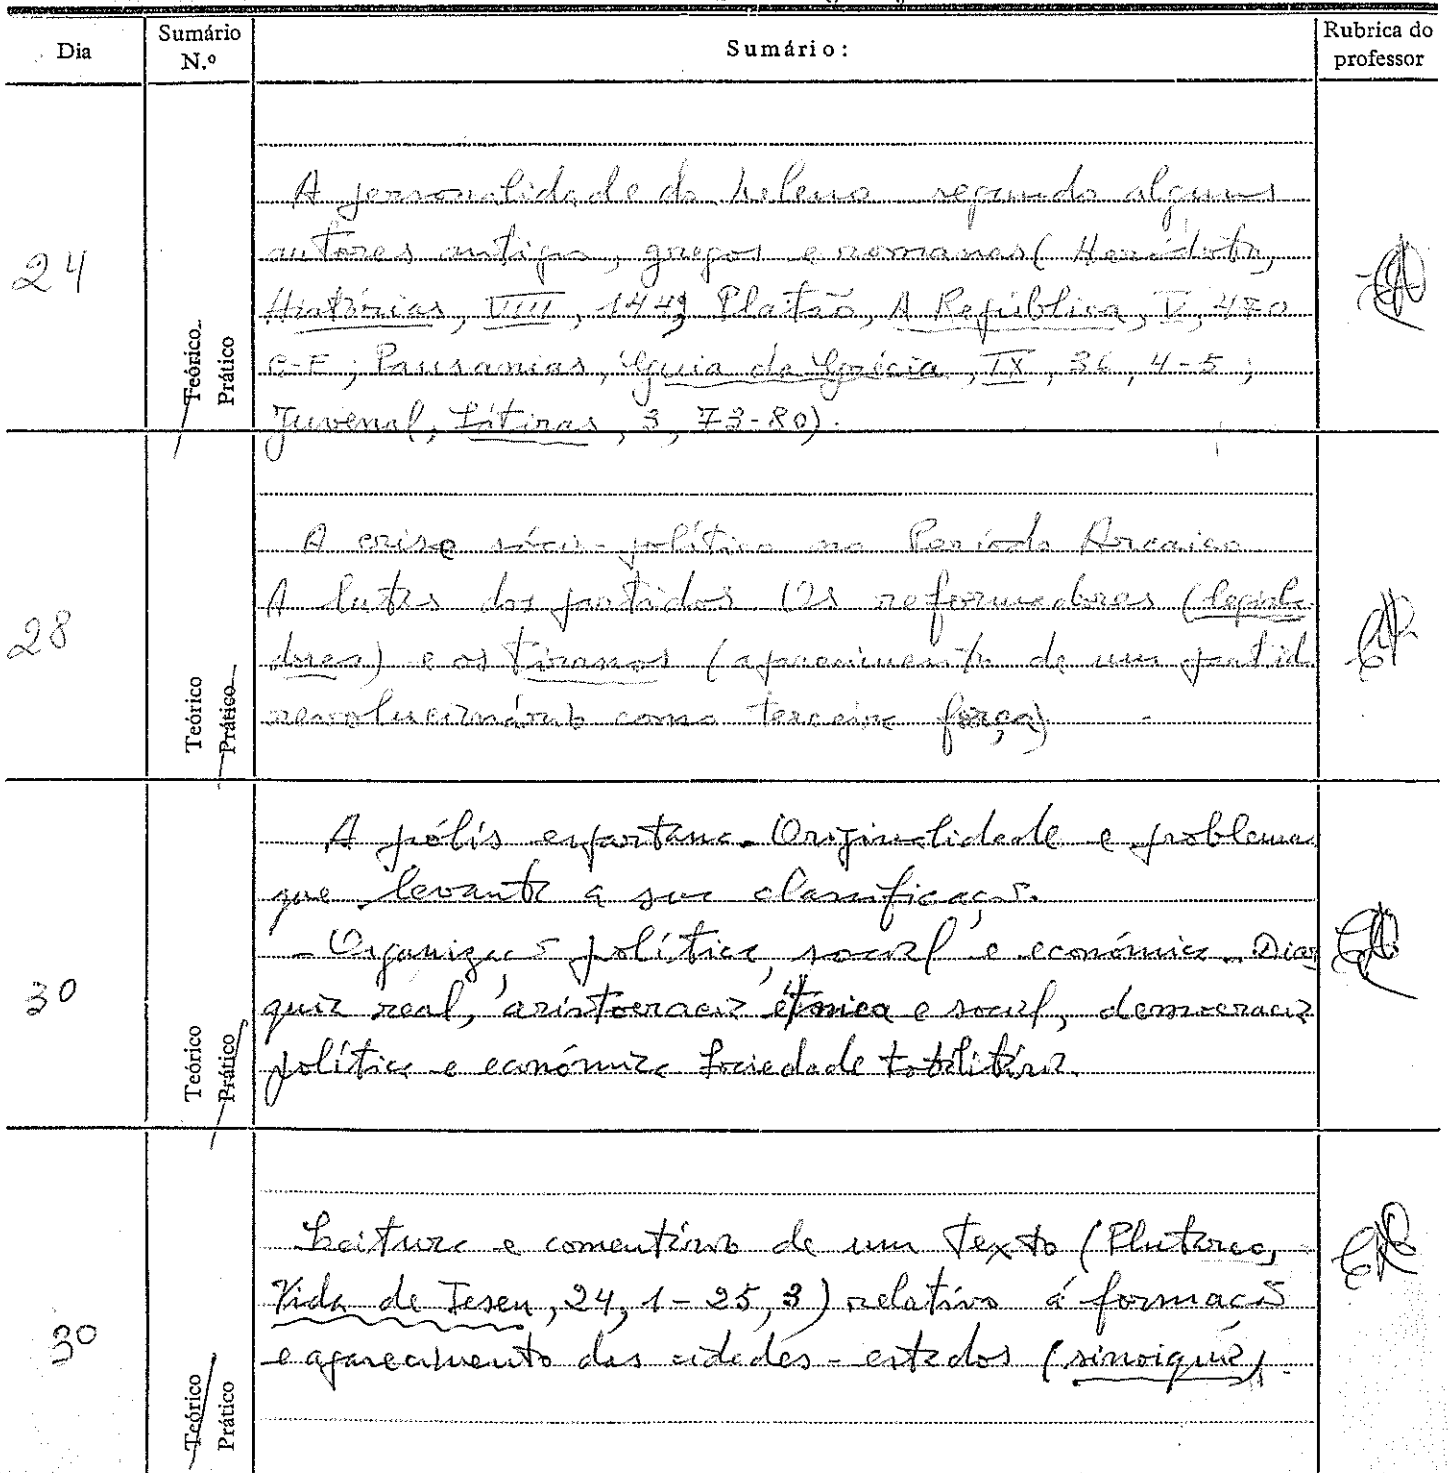 Dia Sumário N.º Sumário: Rubrica do professor
24
Teórico
Prático
A personalidade do heleno segundo alguns
autores antigos, gregos e romanos (Heródoto,
Histórias, VIII, 144; Platão, A República, V, 470
C-E; Pausanias, Guia da Grécia, IX, 36, 4-5;
Juvenal, Sátiras, 3, 73-80).
28
Teórico
Prático
A crise sócio-política no Período Arcaico
A lutas dos partidos Os reformadores (legisla
dores) e os tiranos (aparecimento de um partid
revolucionário como terceira força)
30
Teórico
Prático
A pólis espartana. Originalidade e problemas
que levanta a sua classificação.
- Organização política, social e económica. Diar
quia real, aristocracia étnica e social, democracia
política e económica Sociedade totalitária.
30
Teórico
Prático
Leitura e comentário de um texto (Plutarco,
Vida de Teseu, 24, 1-25, 3) relativo á formação
e aparecimento das cidades-estados (sinoiquia)